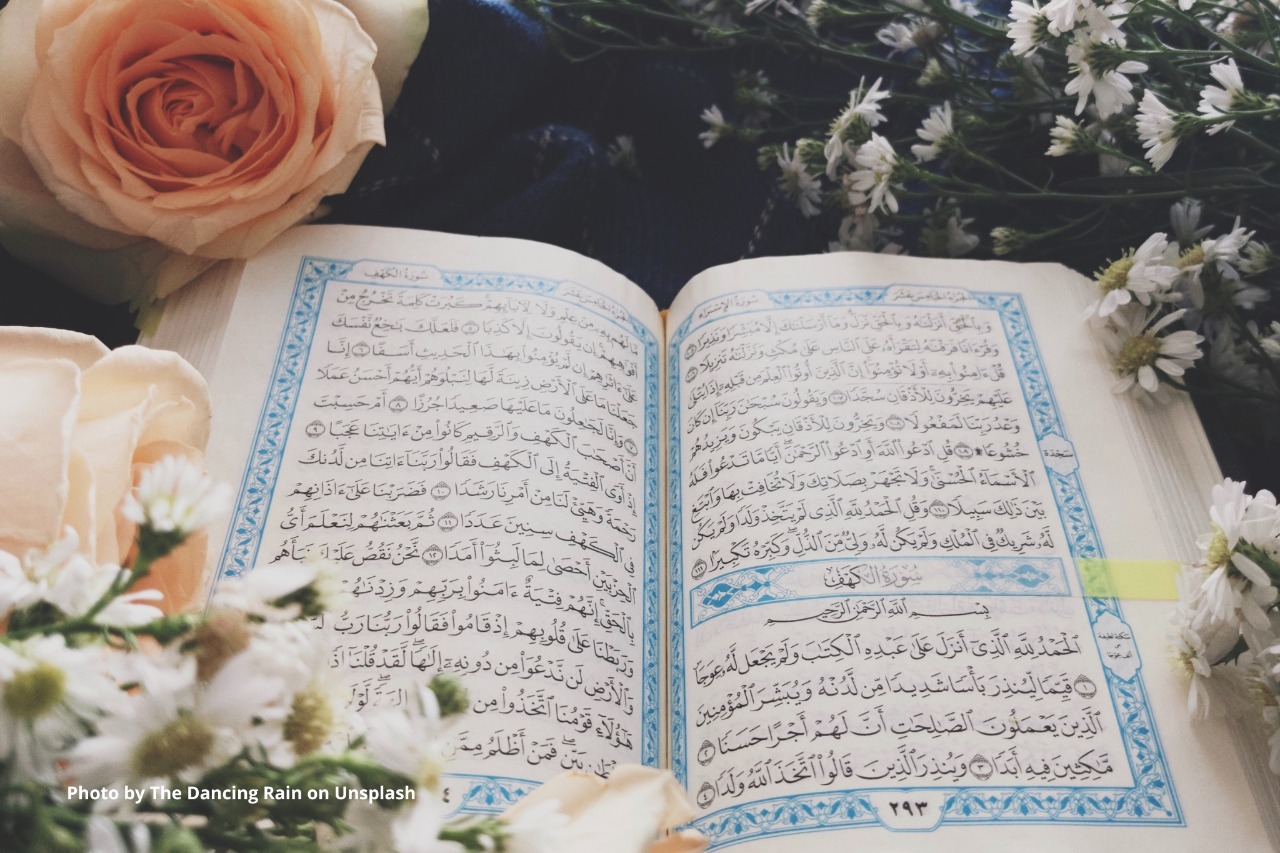 سُورَةُ الإِسْرَاءِ
الجُزْءُ الخَامِسَ عَشَرَ
وَبِالْحَقِّ أَنزَلْنَٰهُ وَبِالْحَقِّ نَزَلَ وَمَا أَرْسَلْنَٰكَ إِلَّا مُبَشِّرًا وَنَذِيرًا ١٠٥
وَقُرْءَانًا فَرَقْنَٰهُ لِتَقْرَأَهُۥ عَلَى النَّاسِ عَلَىٰ مُكْثٍ وَنَزَّلْنَٰهُ تَنزِيلًا ١٠٦
قُلْ ءَامِنُوا۟ بِهِۦٓ أَوْ لَا تُؤْمِنُوٓا۟ إِنَّ الَّذِينَ أُوتُوا۟ الْعِلْمَ مِن قَبْلِهِۦٓ إِذَا يُتْلَىٰ
عَلَيْهِمْ يَخِرُّونَ لِلْأَذْقَانِ سُجَّدًا ١٠٧ وَيَقُولُونَ سُبْحَٰنَ رَبِّنَآ إِن كَانَ
وَعْدُ رَبِّنَا لَمَفْعُولًا ١٠٨ وَيَخِرُّونَ لِلْأَذْقَانِ يَبْكُونَ وَيَزِيدُهُمْ
خُشُوعًا ۩ ١٠٩ قُلِ ادْعُوا۟ اللَّهَ أَوِ ادْعُوا۟ الرَّحْمَٰنَ أَيًّا مَّا تَدْعُوا۟ فَلَهُ
سَجْدَة
الْأَسْمَآءُ الْحُسْنَىٰ وَلَا تَجْهَرْ بِصَلَاتِكَ وَلَا تُخَافِتْ بِهَا وَابْتَغِ
بَيْنَ ذَٰلِكَ سَبِيلًا ١١٠ وَقُلِ الْحَمْدُ لِلَّهِ الَّذِى لَمْ يَتَّخِذْ وَلَدًا وَلَمْ يَكُن
لَّهُۥ شَرِيكٌ فِى الْمُلْكِ وَلَمْ يَكُن لَّهُۥ وَلِىٌّ مِّنَ الذُّلِّ وَكَبِّرْهُ تَكْبِيرًا ١١١
سُورَةُ الْكَهْفِ
بِسْمِ اللَّهِ الرَّحْمَٰنِ الرَّحِيمِ
الْحَمْدُ لِلَّهِ الَّذِىٓ أَنزَلَ عَلَىٰ عَبْدِهِ الْكِتَٰبَ وَلَمْ يَجْعَل لَّهُۥ عِوَجَا
١ قَيِّمًا لِّيُنذِرَ بَأْسًا شَدِيدًا مِّن لَّدُنْهُ وَيُبَشِّرَ الْمُؤْمِنِينَ
الَّذِينَ يَعْمَلُونَ الصَّٰلِحَٰتِ أَنَّ لَهُمْ أَجْرًا حَسَنًا ٢
مَّٰكِثِينَ فِيهِ أَبَدًا ٣ وَيُنذِرَ الَّذِينَ قَالُوا۟ اتَّخَذَ اللَّهُ وَلَدًا ٤
٢٩٣
الجُزْءُ الخَامِسَ عَشَرَ
سُورَةُ الْكَهْفِ
مَّا لَهُم بِهِۦ مِنْ عِلْمٍ وَلَا لِـَٔابَآئِهِمْ كَبُرَتْ كَلِمَةً تَخْرُجُ مِنْ
أَفْوَٰهِهِمْ إِن يَقُولُونَ إِلَّا كَذِبًا ٥ فَلَعَلَّكَ بَٰخِعٌ نَّفْسَكَ
عَلَىٰٓ ءَاثَٰرِهِمْ إِن لَّمْ يُؤْمِنُوا۟ بِهَٰذَا الْحَدِيثِ أَسَفًا ٦ إِنَّا
جَعَلْنَا مَا عَلَى الْأَرْضِ زِينَةً لَّهَا لِنَبْلُوَهُمْ أَيُّهُمْ أَحْسَنُ عَمَلًا
٧ وَإِنَّا لَجَٰعِلُونَ مَا عَلَيْهَا صَعِيدًا جُرُزًا ٨ أَمْ حَسِبْتَ
أَنَّ أَصْحَٰبَ الْكَهْفِ وَالرَّقِيمِ كَانُوا۟ مِنْ ءَايَٰتِنَا عَجَبًا ٩
إِذْ أَوَى الْفِتْيَةُ إِلَى الْكَهْفِ فَقَالُوا۟ رَبَّنَآ ءَاتِنَا مِن لَّدُنكَ
رَحْمَةً وَهَيِّئْ لَنَا مِنْ أَمْرِنَا رَشَدًا ١٠ فَضَرَبْنَا عَلَىٰٓ ءَاذَانِهِمْ
فِى الْكَهْفِ سِنِينَ عَدَدًا ١١ ثُمَّ بَعَثْنَٰهُمْ لِنَعْلَمَ أَىُّ
الْحِزْبَيْنِ أَحْصَىٰ لِمَا لَبِثُوٓا۟ أَمَدًا ١٢ نَّحْنُ نَقُصُّ عَلَيْكَ نَبَأَهُم
بِالْحَقِّ إِنَّهُمْ فِتْيَةٌ ءَامَنُوا۟ بِرَبِّهِمْ وَزِدْنَٰهُمْ
وَرَبَطْنَا عَلَىٰ قُلُوبِهِمْ إِذْ قَامُوا۟ فَقَالُوا۟ رَبُّنَا رَبُّ
وَالْأَرْضِ لَن نَّدْعُوَا۟ مِن دُونِهِۦٓ إِلَٰهًا لَّقَدْ قُلْنَآ إِذًا
هَٰٓؤُلَآءِ قَوْمُنَا اتَّخَذُوا۟ مِن
بَيِّنٍ فَمَنْ أَظْلَمُ مِمَّنِ
Photo by The Dancing Rain on Unsplash